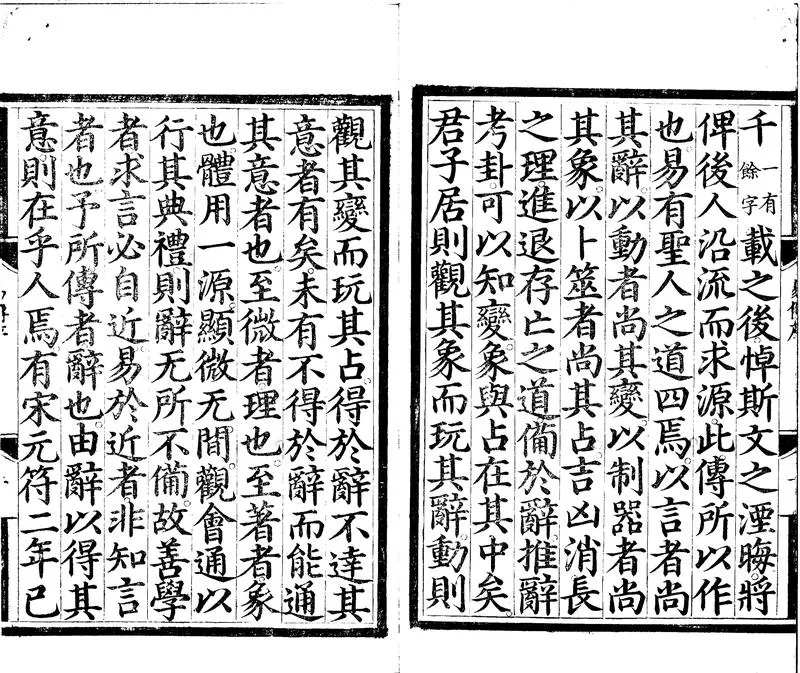 千一有餘字載之後悼斯文之湮晦將
俾後人沿流而求源此傳所以作
也易有聖人之道四焉以言者尚
其辭以動者尚其變以制器者尚
其象以卜筮者尚其占吉凶消長
之理進退存亡之道備於辭推辭
考卦可以知變象與占在其中矣
君子居則觀其象而玩其辭動則
觀其變而玩其占得於辭不達其
意者有矣未有不得於辭而能通
其意者也至微者理也至著者象
也體用一源顯微无間觀會通以
行其典禮則辭无所不備故善學
者求言必自近易於近者非知言
者也予所傳者辭也由辭以得其
意則在乎人焉有宋元符二年已